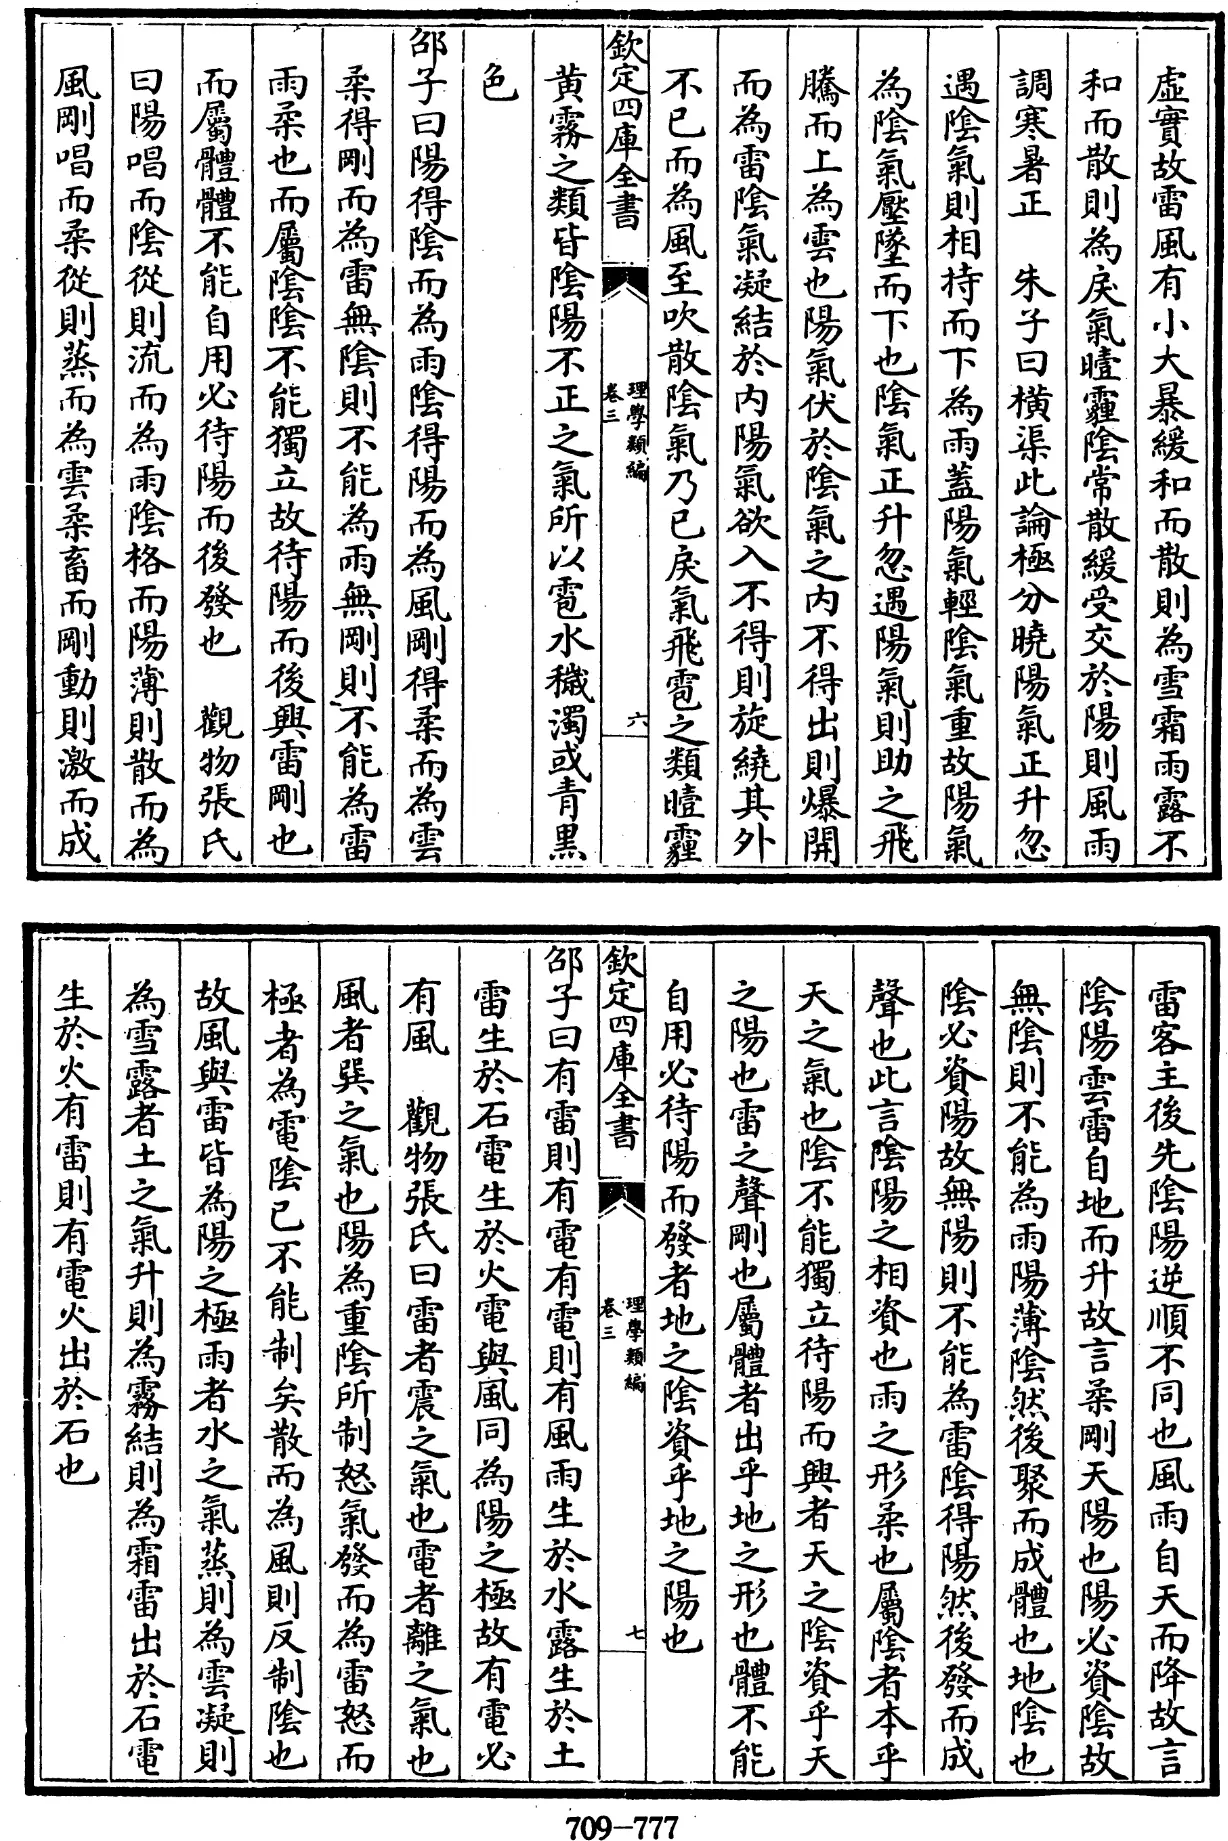 虛實故雷風有小大暴緩和而散則為雪霜雨露不
和而散則為戾氣曀霾陰常散緩受交於陽則風雨
調寒暑正　朱子曰橫渠此論極分曉陽氣正升忽
遇陰氣則相持而下為雨蓋陽氣輕陰氣重故陽氣
為陰氣壓墜而下也陰氣正升忽遇陽氣則助之飛
騰而上為雲也陽氣伏於陰氣之內不得出則爆開
而為雷陰氣凝結於內陽氣欲入不得則旋繞其外
不已而為風至吹散陰氣乃已戾氣飛雹之類曀霾
欽定四庫全書
理學類編
卷三
六
黄霧之類皆陰陽不正之氣所以雹水穢濁或青黑
色
邵子曰陽得陰而為雨陰得陽而為風剛得柔而為雲
柔得剛而為雷無陰則不能為雨無剛則不能為雷
雨柔也而屬陰陰不能獨立故待陽而後興雷剛也
而屬體體不能自用必待陽而後發也　觀物張氏
曰陽唱而陰從則流而為雨陰格而陽薄則散而為
風剛唱而柔從則蒸而為雲柔畜而剛動則激而成
雷客主後先陰陽逆順不同也風雨自天而降故言
陰陽雲雷自地而升故言柔剛天陽也陽必資陰故
無陰則不能為雨陽薄陰然後聚而成體也地陰也
陰必資陽故無陽則不能為雷陰得陽然後發而成
聲也此言陰陽之相資也雨之形柔也屬陰者本乎
天之氣也陰不能獨立待陽而興者天之陰資乎天
之陽也雷之聲剛也屬體者出乎地之形也體不能
自用必待陽而發者地之陰資乎地之陽也
欽定四庫全書
理學類編
卷三
七
邵子曰有雷則有電有電則有風雨生於水露生於土
雷生於石電生於火電與風同為陽之極故有電必
有風　觀物張氏曰雷者震之氣也電者離之氣也
風者巽之氣也陽為重陰所制怒氣發而為雷怒而
極者為電陰已不能制矣散而為風則反制陰也
故風與雷皆為陽之極雨者水之氣蒸則為雲凝則
為雪露者土之氣升則為霧結則為霜雷出於石電
生於火有雷則有電火出於石也
709-777